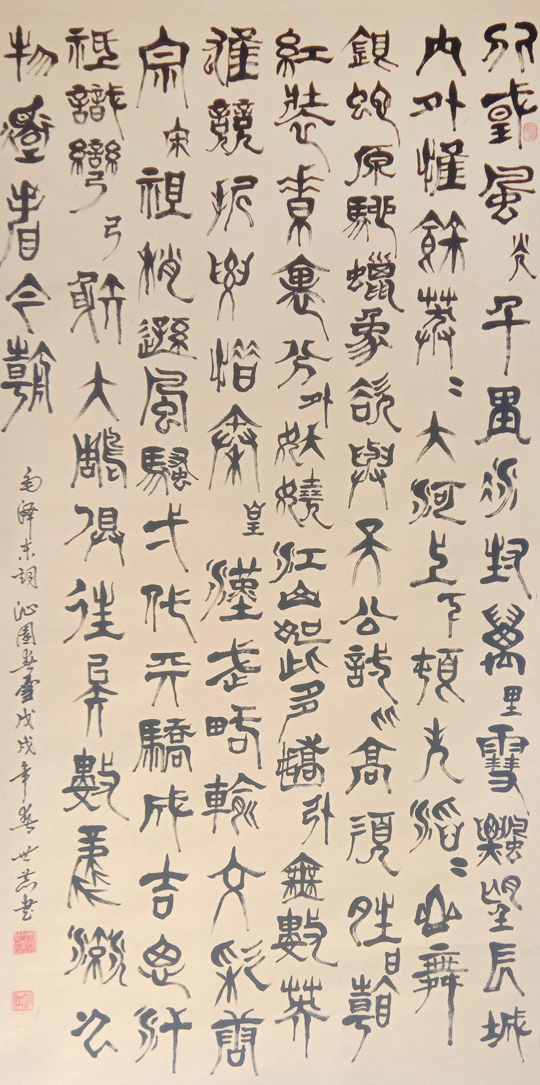 北國風光千里冰封萬里雪飄望長城
內外惟餘莽〻大河上下頓失滔〻山舞
銀蛇原馳蠟象欲與天公試比高須晴日看
紅裝素裹分外妖嬈江山如此多嬌引無數英
雄競折腰惜秦皇漢武略輸文采唐
宗宋祖稍遜風騷一代天驕成吉思汗
祗識彎弓射大雕俱往矣數風流人
物還看今朝
毛泽东詞沁園春雪戊戌年春世書